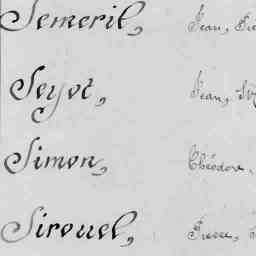 Semeril, Jean,
Seyot, Jean,
Simon, Théodore,
Sirouel, Pierre,